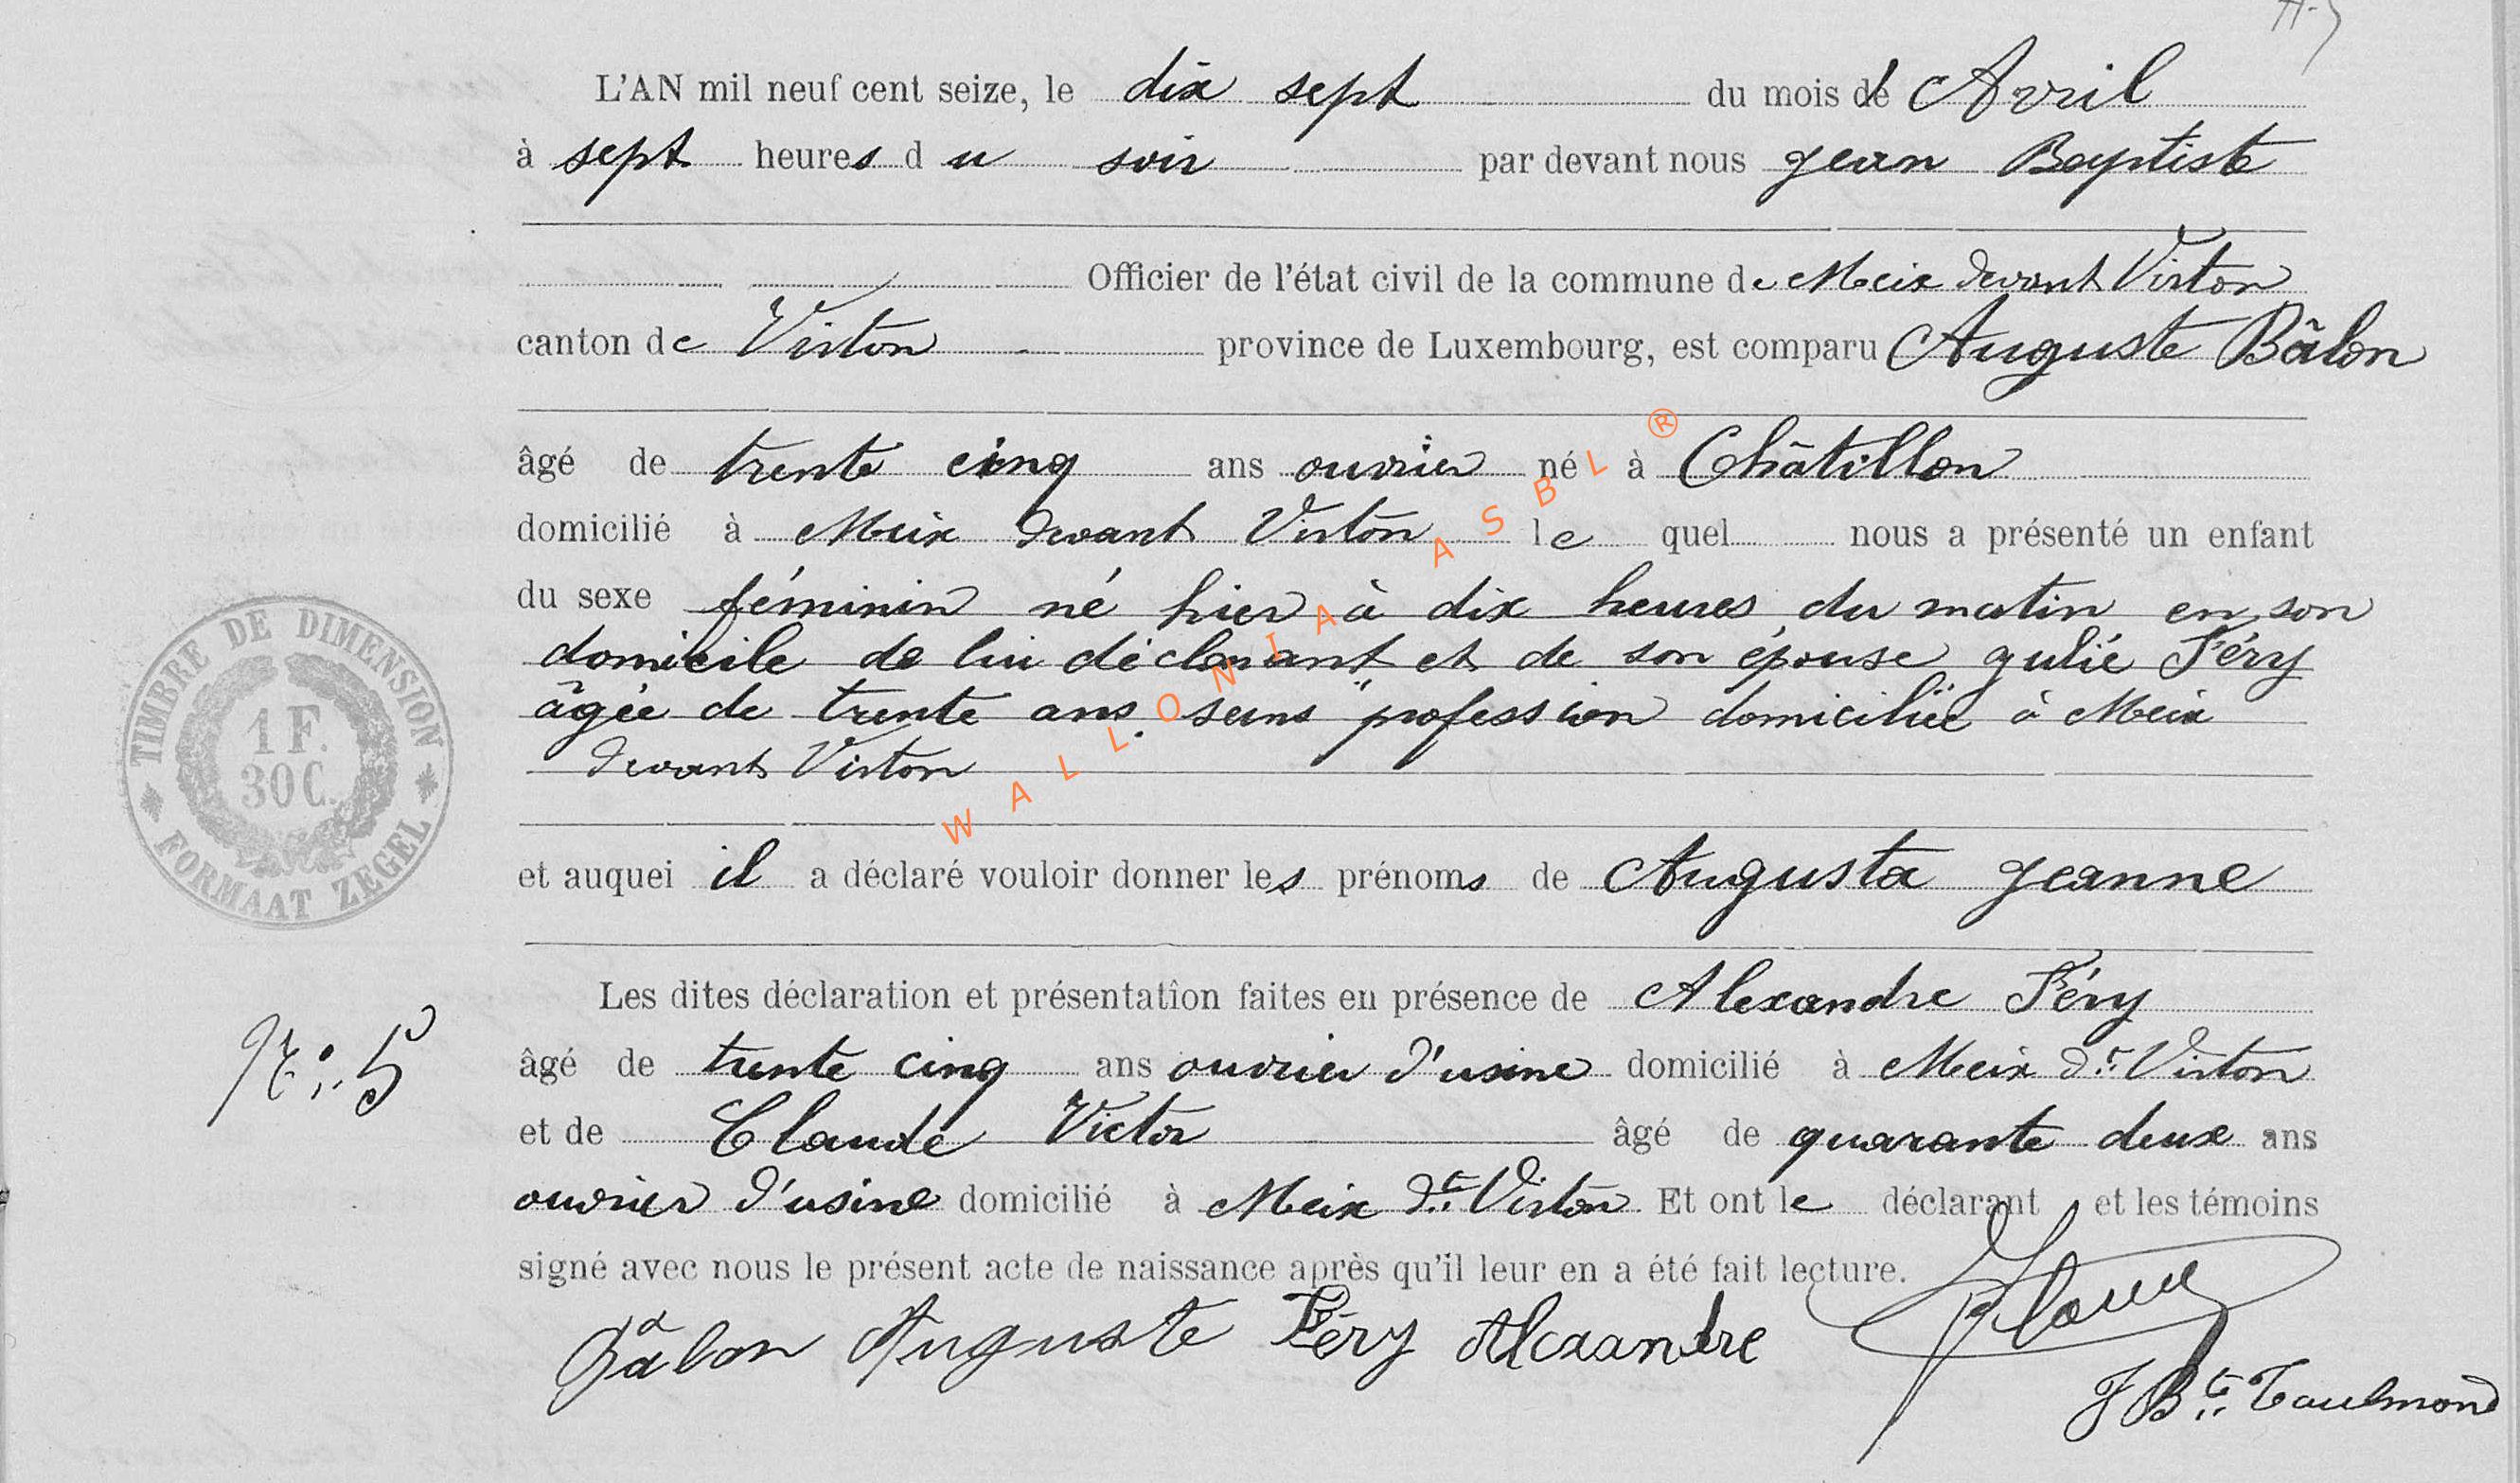 L'AN mil neuf cent seize, le dix sept du mois d' Avril
à sept heures du soir par devant nous Jean Baptiste
Officier de l'état civil de la commune de Meix devant Virton
canton de Virton province de Luxembourg, est comparu Auguste Bâlon
âgé de trente cinq ans ouvrier né à Châtillon
domicilié à Meix devant Virton lequel nous a présenté un enfant
du sexe féminin né hier à dix heures du matin en son
domicile de lui déclarant et de son épouse Julie Féry
âgée de trente ans sans profession domiciliée à Meix
devant Virton
et auquel il a déclaré vouloir donner les prénoms de Augusta Jeanne
Les dites déclaration et présentation faites en présence de Alexandre Féry
âgé de trente cinq ans ouvrier d'usine domicilié à Meix dt Virton
et de Claude Victor âgé de quarante deux ans
ouvrier d'usine domicilié à Meix dt Virton. Et ont le déclarant et les témoins
signé avec nous le présent acte de naissance après qu'il leur en a été fait lecture.
Bâlon Auguste Féry Alexandre
J Bte Taulmond
N° 5
TIMBRE DE DIMENSION
1 F.
30 C.
FORMAAT ZEGEL
WALLONIA ASBL ®